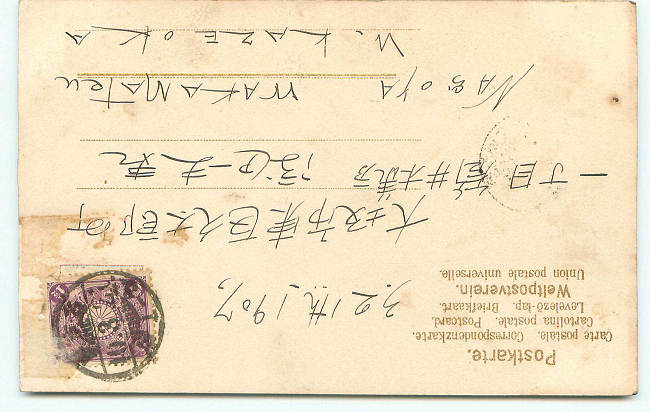 Postkarte.
Carte postale. Correspondenzkarte.
Cartolina postale. Postcard.
Levelező-lap. Briefkaart.
Weltpostverein.
Union postale universelle.
3. 21th, 1907,
大坂市東区久太郎町
一丁目 筒井
NAGOYA WAKAMATSU
W. KAZEOKA